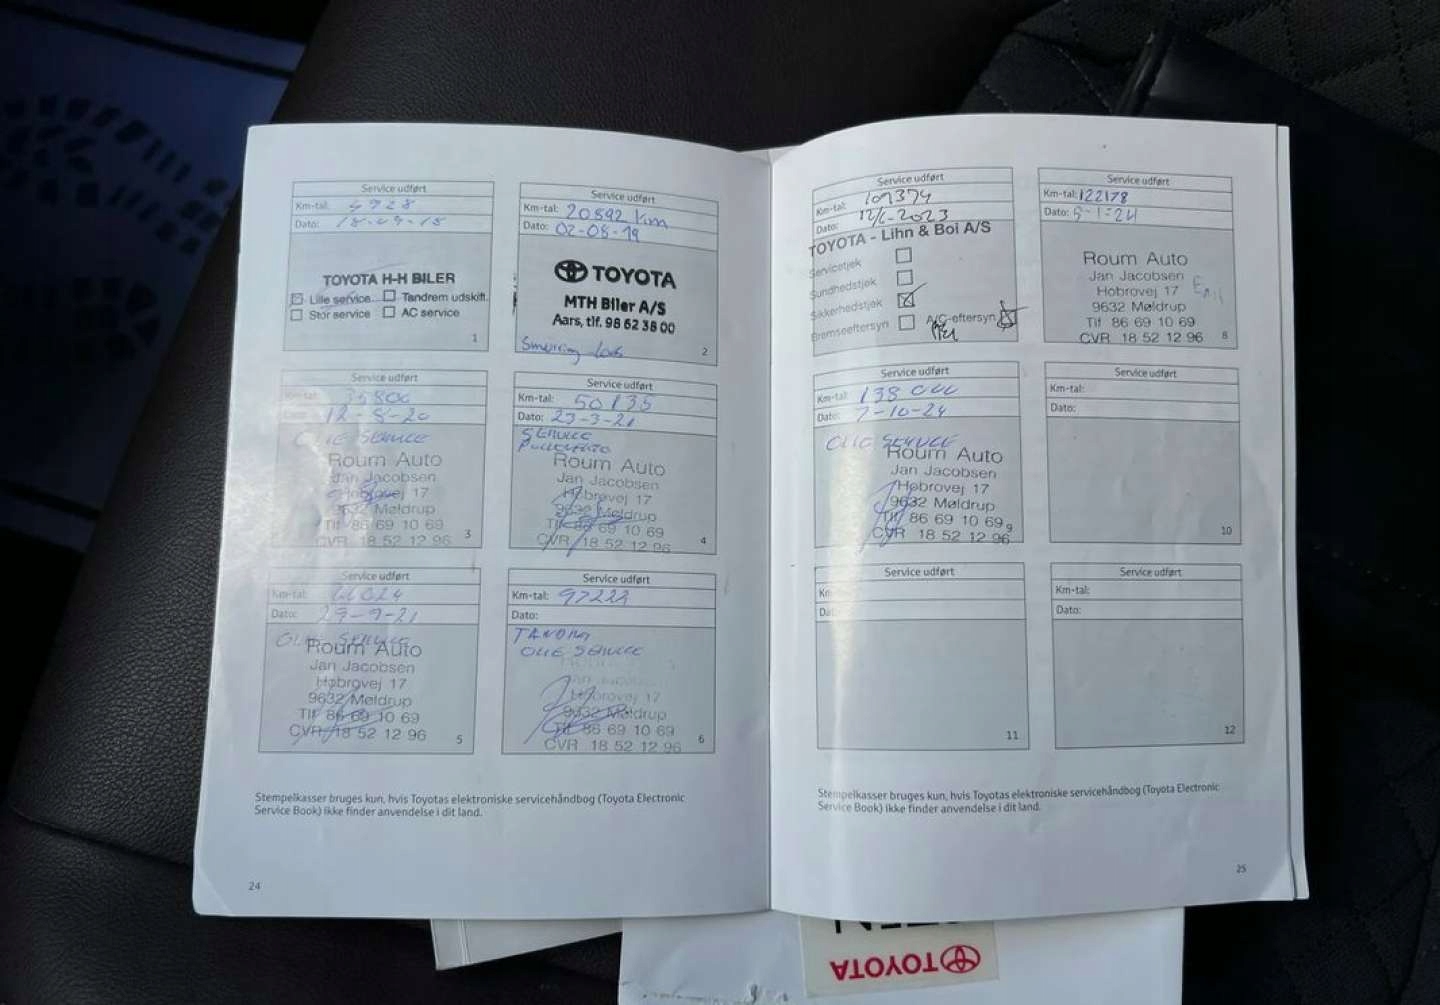 Service udført
Km-tal: 4928
Dato:
TOYOTA H-H BILER
Lille service Tandrem udskift.
Stor service AC service
1
Service udført
Km-tal: 20892 km
Dato: 02-08-19
TOYOTA
MTH Biler A/S
Aars, tlf. 98 62 38 00
2
Service udført
Km-tal: 35800
Dato: 12-8-20
OLIE SERVICE
Roum Auto
Jan Jacobsen
Hobrovej 17
9632 Møldrup
Tlf 86 69 10 69
CVR 18 52 12 96
3
Service udført
Km-tal: 50135
Dato: 23-3-21
SERVICE
Roum Auto
Jan Jacobsen
Hobrovej 17
9632 Møldrup
Tlf 86 69 10 69
CVR 18 52 12 96
4
Service udført
Km-tal:
Dato: 29-9-21
OLIE SERVICE
Roum Auto
Jan Jacobsen
Hobrovej 17
9632 Møldrup
Tlf 86 69 10 69
CVR 18 52 12 96
5
Service udført
Km-tal: 97222
Dato:
TANDREM
OLIE SERVICE
Jan Jacobsen
Hobrovej 17
9632 Møldrup
Tlf 86 69 10 69
CVR 18 52 12 96
6
Stempelkasser bruges kun, hvis Toyotas elektroniske servicehåndbog (Toyota Electronic
Service Book) ikke finder anvendelse i dit land.
24
Service udført
Km-tal: 109374
Dato: 12/6-2023
TOYOTA - Lihn & Boi A/S
Servicetjek
Sundhedstjek
Sikkerhedstjek
Bremseeftersyn A/C-eftersyn
Service udført
Km-tal: 122178
Dato: 5-1-24
Roum Auto
Jan Jacobsen
Hobrovej 17
9632 Møldrup
Tlf 86 69 10 69
CVR 18 52 12 96
8
Service udført
Km-tal: 138000
Dato: 7-10-24
OLIE SERVICE
Roum Auto
Jan Jacobsen
Hobrovej 17
9632 Møldrup
Tlf 86 69 10 69
CVR 18 52 12 96
9
Service udført
Km-tal:
Dato:
10
Service udført
11
Service udført
Km-tal:
Dato:
12
Stempelkasser bruges kun, hvis Toyotas elektroniske servicehåndbog (Toyota Electronic
Service Book) ikke finder anvendelse i dit land.
25
TOYOTA